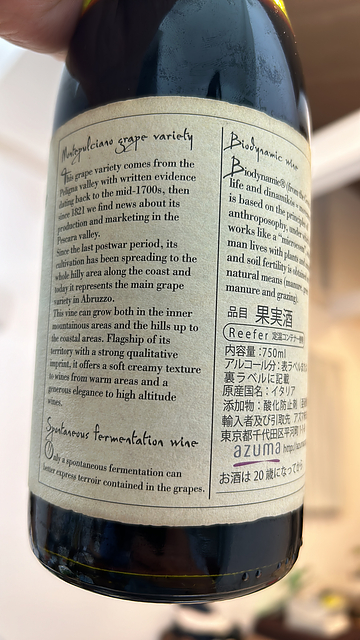 Montepulciano grape variety
This grape variety comes from the
Peligna valley with written evidence
dating back to the mid-1700s, then
since 1821 we find news about its
production and marketing in the
Pescara valley.
Since the last postwar period, its
cultivation has been spreading to the
whole hilly area along the coast and
today it represents the main grape
variety in Abruzzo.
This vine can grow both in the inner
mountainous areas and the hills up to
the coastal areas. Flagship of its
territory with a strong qualitative
imprint, it offers a soft creamy texture
to wines from warm areas and a
generous elegance to high altitude
wines.
Spontaneous fermentation wine
Only a spontaneous fermentation can
better express terroir contained in the grapes.
Biodynamic wine
Biodynamic® (from the
life and dinamikós
is based on the
anthroposophy,
works like a
man lives with plants
and soil fertility is
natural means (manure,
manure and grazing).
品目 果実酒
(Reefer 定温コンテナー
内容量:750ml
アルコール分:表ラベル
裏ラベルに記載
原産国名:イタリア
添加物:酸化防止剤
輸入者及び引取先
東京都千代田区平河町
azuma http://
お酒は20歳になってから